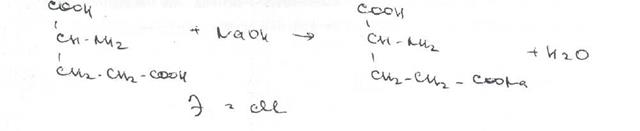 COOH COOH
CH-NH2 + NaOH → CH-NH2 + H2O
CH2-CH2-COOH CH2-CH2-COONa